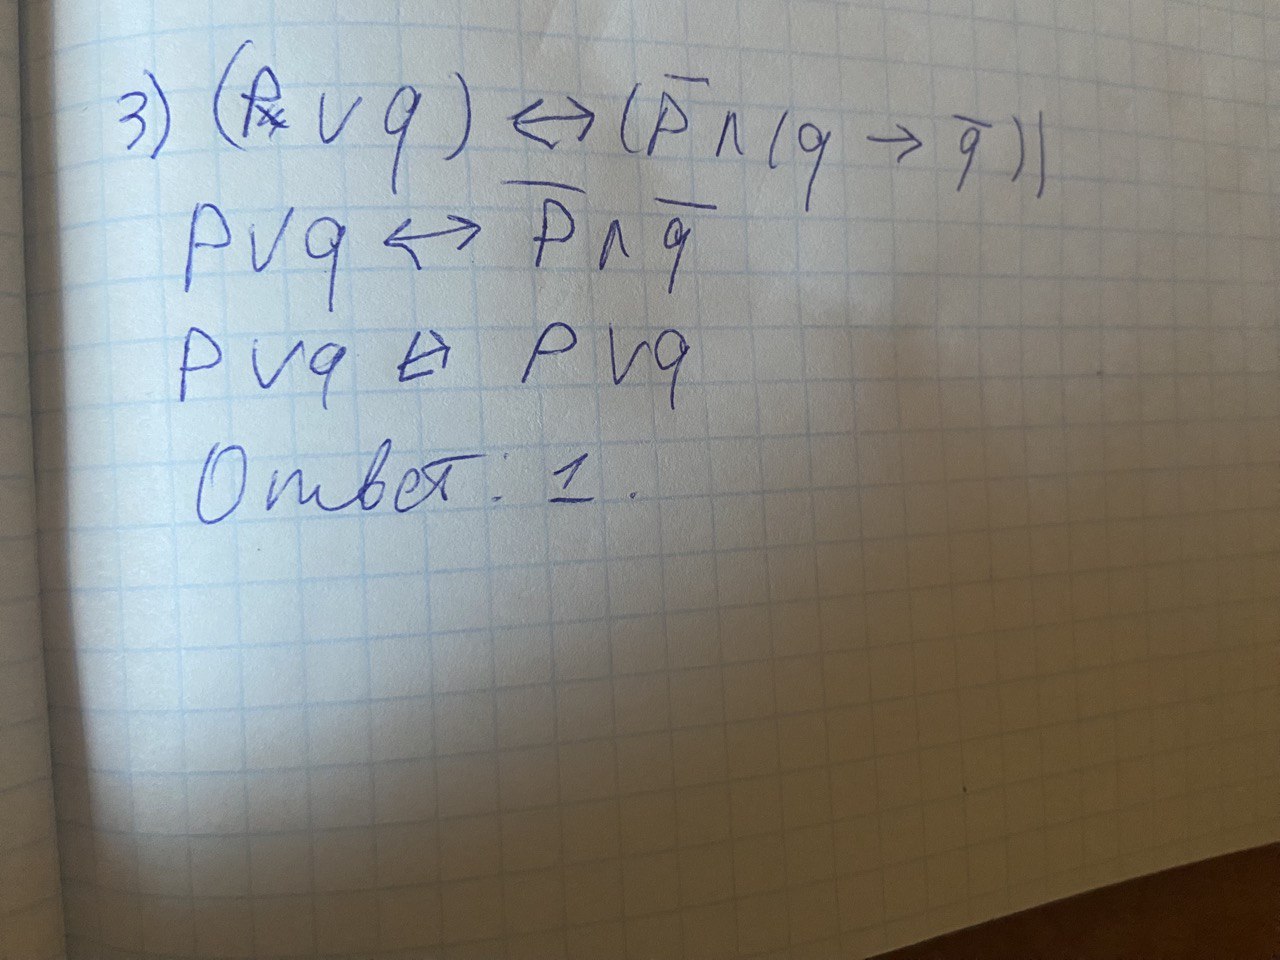 3) (p ∨ q) ↔ (p̅ ∧ (q → q̅))
p ∨ q ↔ p̅ ∧ q̅
p ∨ q ↔ p ∨ q
Ответ: 1.